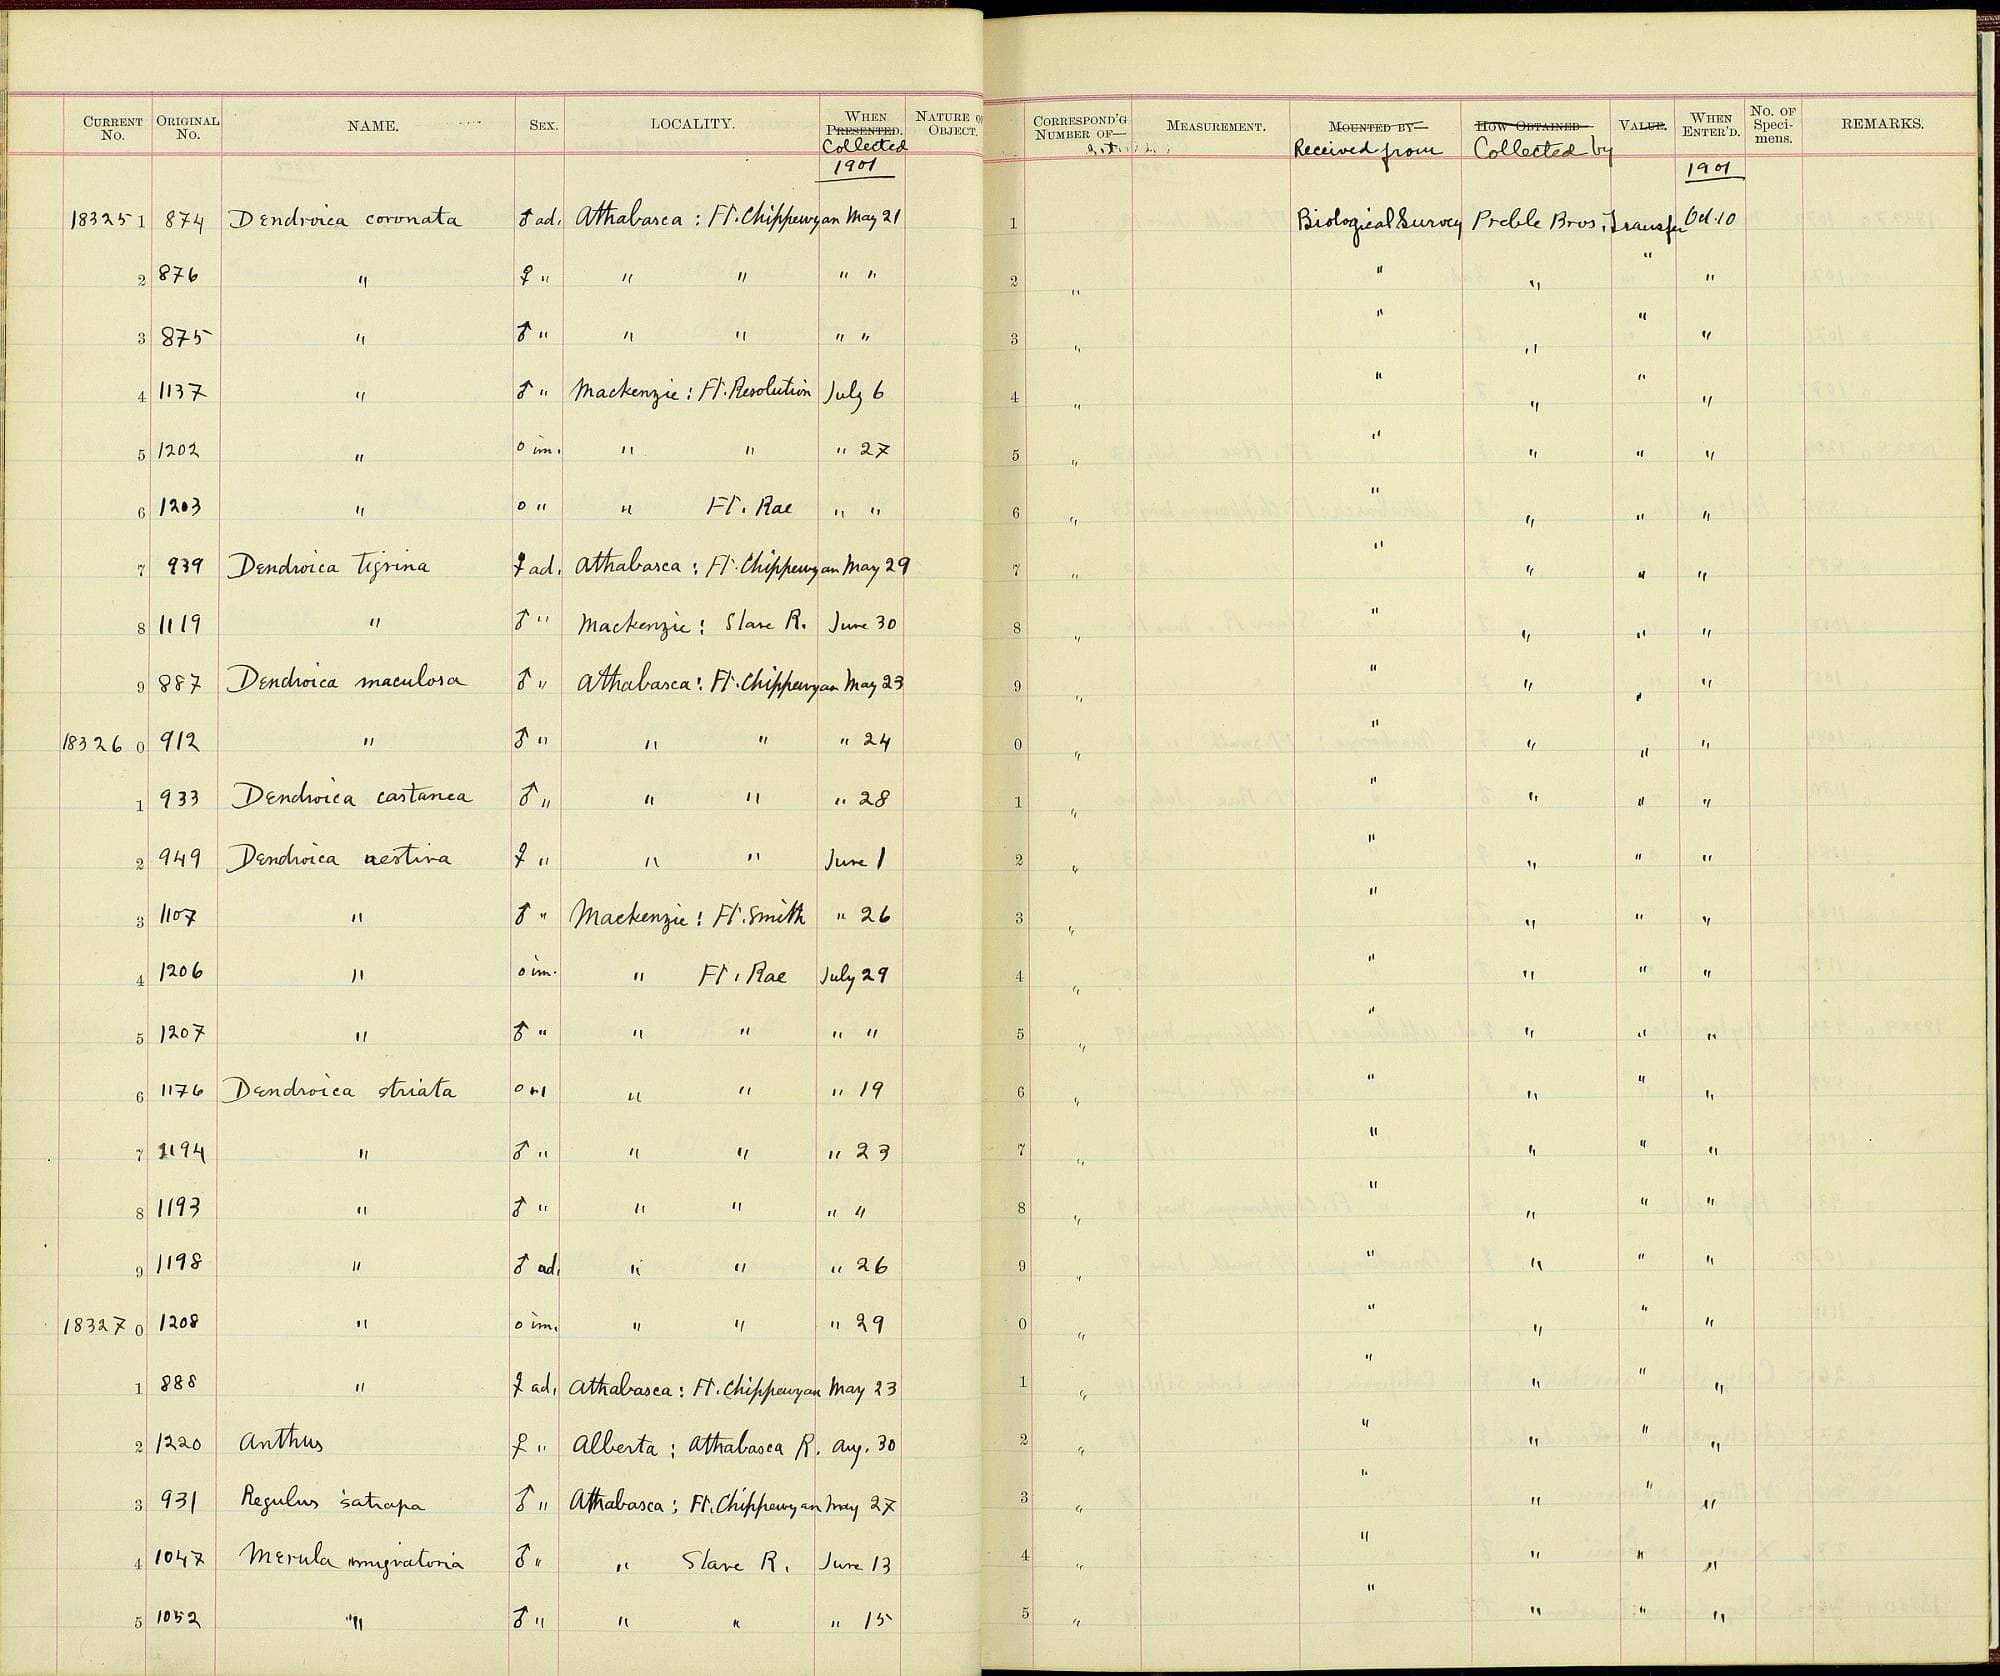 CURRENT No. ORIGINAL No. NAME. SEX. LOCALITY. WHEN PRESENTED. Collected NATURE OF OBJECT. CORRESPOND'G NUMBER OF— MEASUREMENT. MOUNTED BY— Received from HOW OBTAINED— Collected by VALUE. WHEN ENTER'D. No. OF Speci-mens. REMARKS.
1901 1901
183251 874 Dendroica coronata ♂ ad. Athabasca : Ft. Chippewyan May 21 1 Biological Survey Preble Bros. Transfer Oct. 10
2 876 " ♀ " " " " " 2 " " " " "
3 875 " ♂ " " " " " 3 " " " " "
4 1137 " ♂ " Mackenzie : Ft. Resolution July 6 4 " " " " "
5 1202 " o im. " " " 27 5 " " " " "
6 1203 " o " " Ft. Rae " " 6 " " " " "
7 939 Dendroica tigrina ♀ ad. Athabasca : Ft. Chippewyan May 29 7 " " " " "
8 1119 " ♂ " Mackenzie : Slave R. June 30 8 " " " " "
9 887 Dendroica maculosa ♂ " Athabasca : Ft. Chippewyan May 23 9 " " " " "
18326 0 912 " ♂ " " " " 24 0 " " " " "
1 933 Dendroica castanea ♂ " " " " 28 1 " " " " "
2 949 Dendroica aestiva ♀ " " " June 1 2 " " " " "
3 1107 " ♂ " Mackenzie : Ft. Smith " 26 3 " " " " "
4 1206 " o im. " Ft. Rae July 29 4 " " " " "
5 1207 " ♂ " " " " " 5 " " " " "
6 1176 Dendroica striata o " " " 19 6 " " " " "
7 1194 " ♂ " " " " 23 7 " " " " "
8 1193 " ♂ " " " " " 8 " " " " "
9 1198 " ♂ ad. " " " 26 9 " " " " "
18327 0 1208 " o im. " " " 29 0 " " " " "
1 888 " ♀ ad. Athabasca : Ft. Chippewyan May 23 1 " " " " "
2 1220 Anthus ♀ " Alberta : Athabasca R. Aug. 30 2 " " " " "
3 931 Regulus satrapa ♂ " Athabasca : Ft. Chippewyan May 27 3 " " " " "
4 1047 Merula migratoria ♂ " " Slave R. June 13 4 " " " " "
5 1052 " ♂ " " " " 15 5 " " " " "